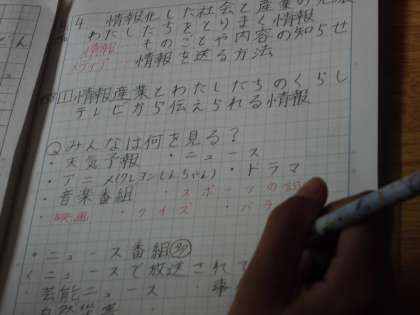 4. 情報化した社会と産業の
わたしたちをとりまく情報
情報 そのことや内容の知らせ
メディア 情報を送る方法
1 情報産業とわたしたちのくらし
テレビから伝えられる情報
Q みんなは何を見る?
・天気予報 ・ニュース
・アニメ(クレヨンしんちゃん)・ドラマ
・音楽番組 ・スポーツの
・映画 ・クイズ ・バラ
・ニュース番組
くニュースで放送されて
・芸能ニュース ・事